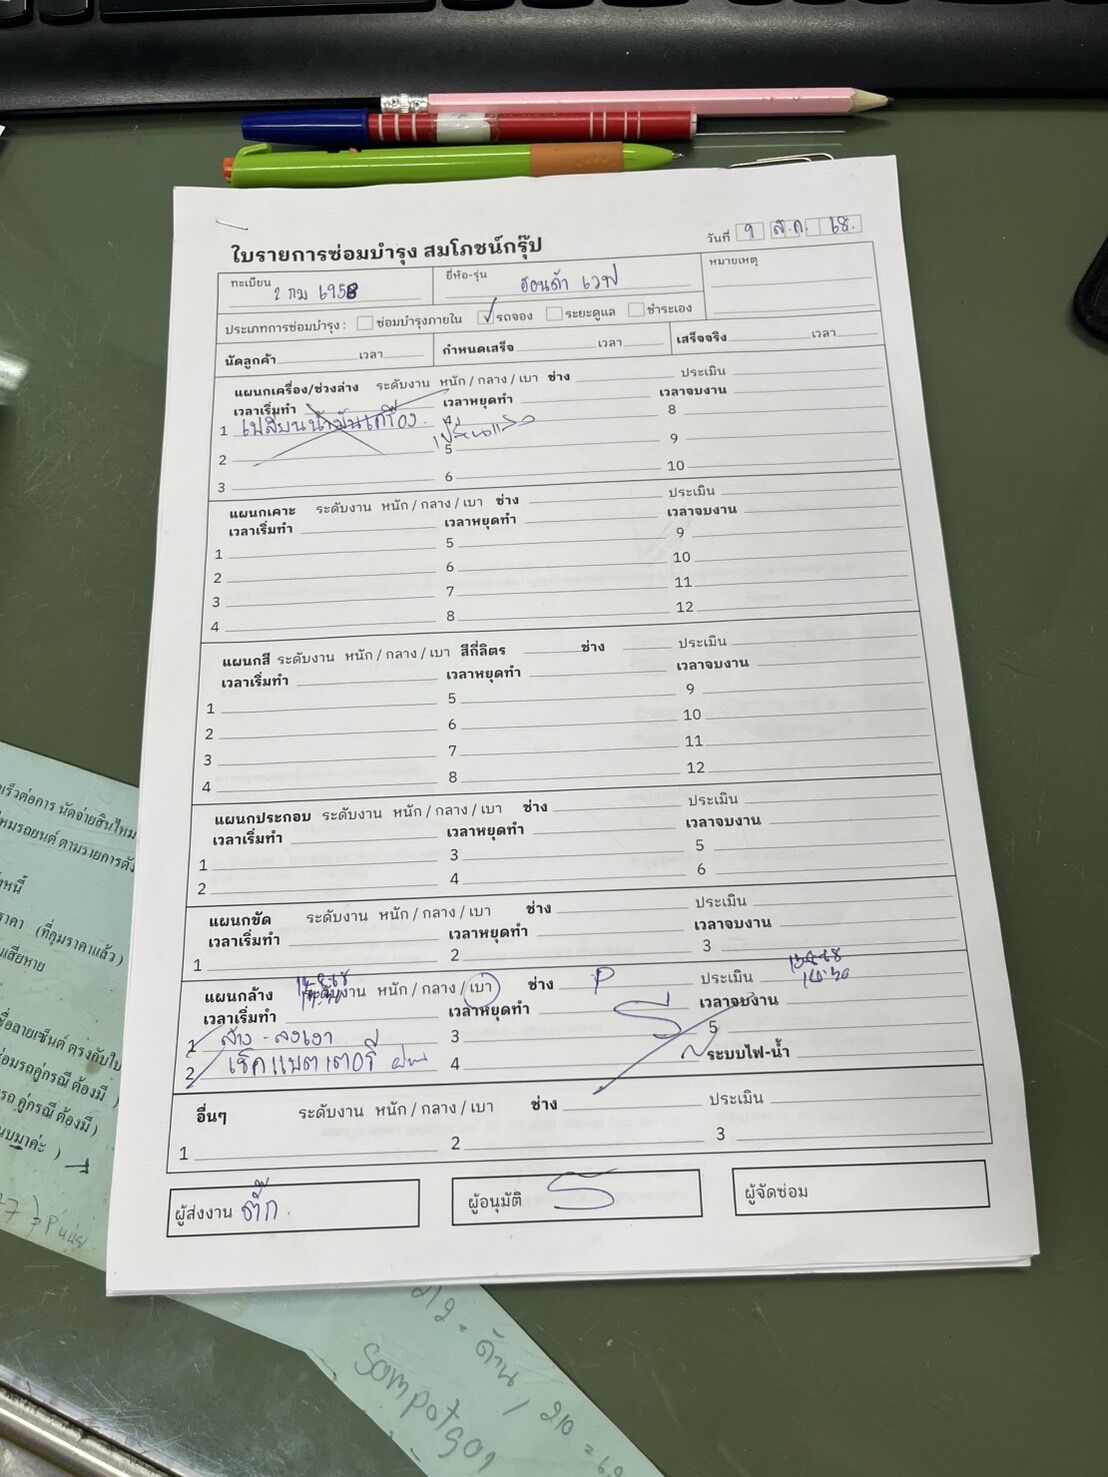 ใบรายการซ่อมบำรุง สมโภชน์กรุ๊ป
วันที่ 9 ส.ค. 68.
ทะเบียน 2 กม 6958 ยี่ห้อ-รุ่น ฮอนด้า เวฟ หมายเหตุ
ประเภทการซ่อมบำรุง : ซ่อมบำรุงภายใน ✓ รถจอง ระยะดูแล ชำระเอง
นัดลูกค้า เวลา กำหนดเสร็จ เวลา เสร็จจริง เวลา
แผนกเครื่อง/ช่วงล่าง ระดับงาน หนัก / กลาง / เบา ช่าง ประเมิน
เวลาเริ่มทำ เวลาหยุดทำ เวลาจบงาน
1 เปลี่ยนน้ำมันเครื่อง. 4 เปลี่ยนแล้ว 8
2 5 9
3 6 10
แผนกเคาะ ระดับงาน หนัก / กลาง / เบา ช่าง ประเมิน
เวลาเริ่มทำ เวลาหยุดทำ เวลาจบงาน
1 5 9
2 6 10
3 7 11
4 8 12
แผนกสี ระดับงาน หนัก / กลาง / เบา สีกี่ลิตร ช่าง ประเมิน
เวลาเริ่มทำ เวลาหยุดทำ เวลาจบงาน
1 5 9
2 6 10
3 7 11
4 8 12
แผนกประกอบ ระดับงาน หนัก / กลาง / เบา ช่าง ประเมิน
เวลาเริ่มทำ เวลาหยุดทำ เวลาจบงาน
1 3 5
2 4 6
แผนกขัด ระดับงาน หนัก / กลาง / เบา ช่าง ประเมิน
เวลาเริ่มทำ เวลาหยุดทำ เวลาจบงาน
1 2 3
แผนกล้าง ระดับงาน หนัก / กลาง / เบา ช่าง P ประเมิน
เวลาเริ่มทำ เวลาหยุดทำ เวลาจบงาน
1 ล้าง - ลงเงา 3 5
2 เช็คแบตเตอรี่ 4 ระบบไฟ-น้ำ
อื่นๆ ระดับงาน หนัก / กลาง / เบา ช่าง ประเมิน
1 2 3
ผู้ส่งงาน ติ๊ก. ผู้อนุมัติ ผู้จัดซ่อม
เร็วต่อการ นัดจ่ายสินไหม
หมรถยนต์ ตามรายการดัง
ังหนี้
ราคา (ที่คุมราคาแล้ว)
มเสียหาย
ชื่อลายเซ็นต์ ตรงกับใบ
่อมรถคู่กรณี ต้องมี )
รถ คู่กรณี ต้องมี )
นบมาค่ะ )